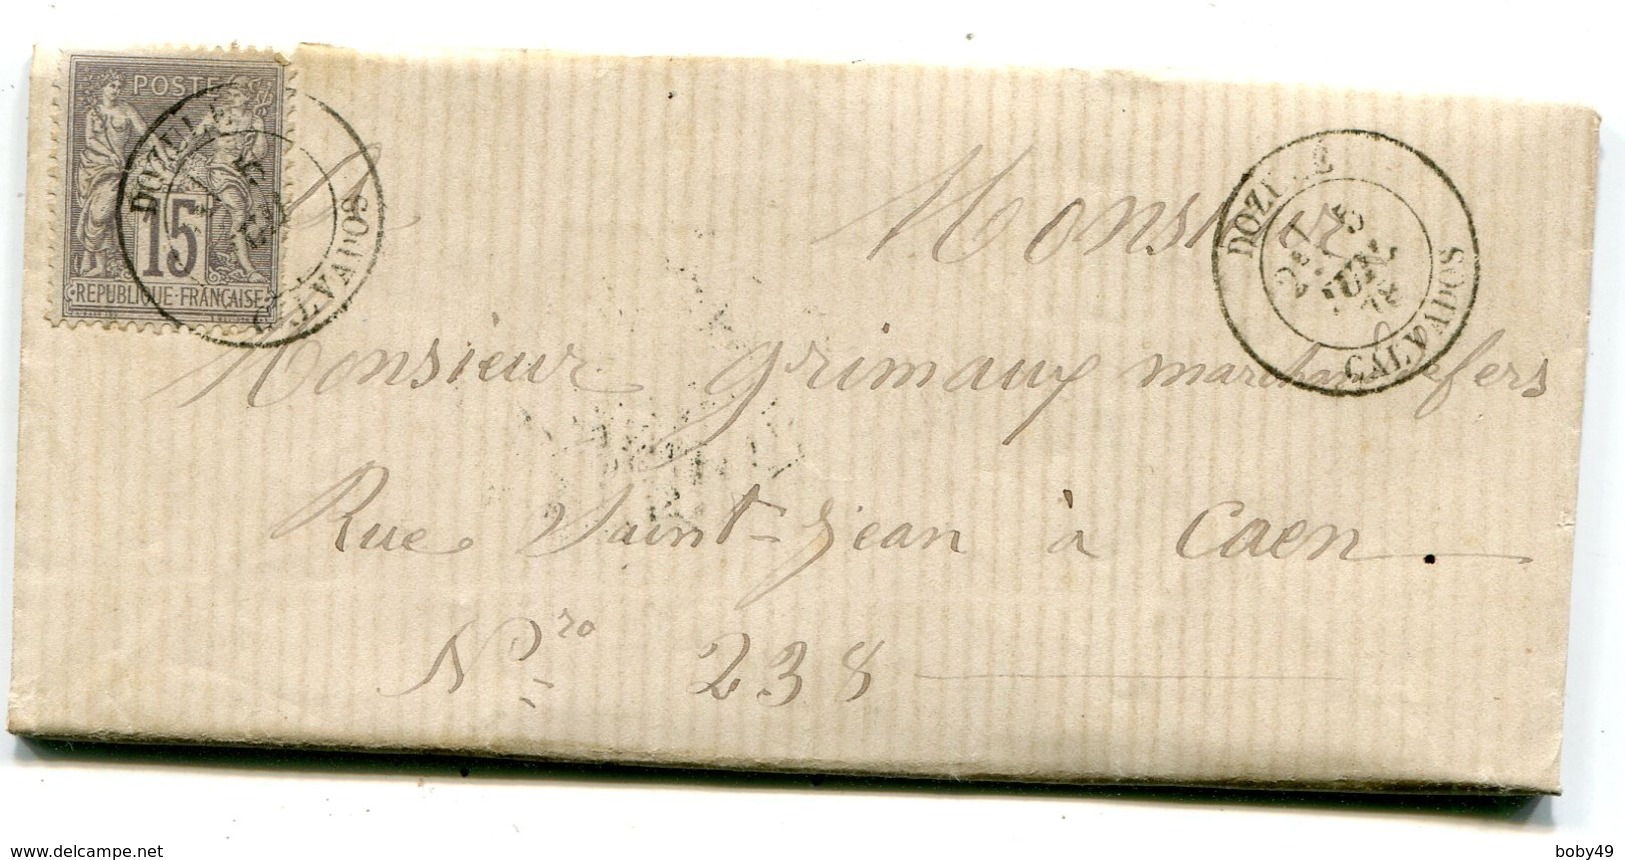 POSTE
15
REPUBLIQUE-FRANCAISE
CALVADOS
DOZULE
JUIL
78
CALVADOS
A Monsieur
Monsieur Grimaux marchand defers
Rue Saint-Jean à Caen.
Nro 238
www.delcampe.net
boby49